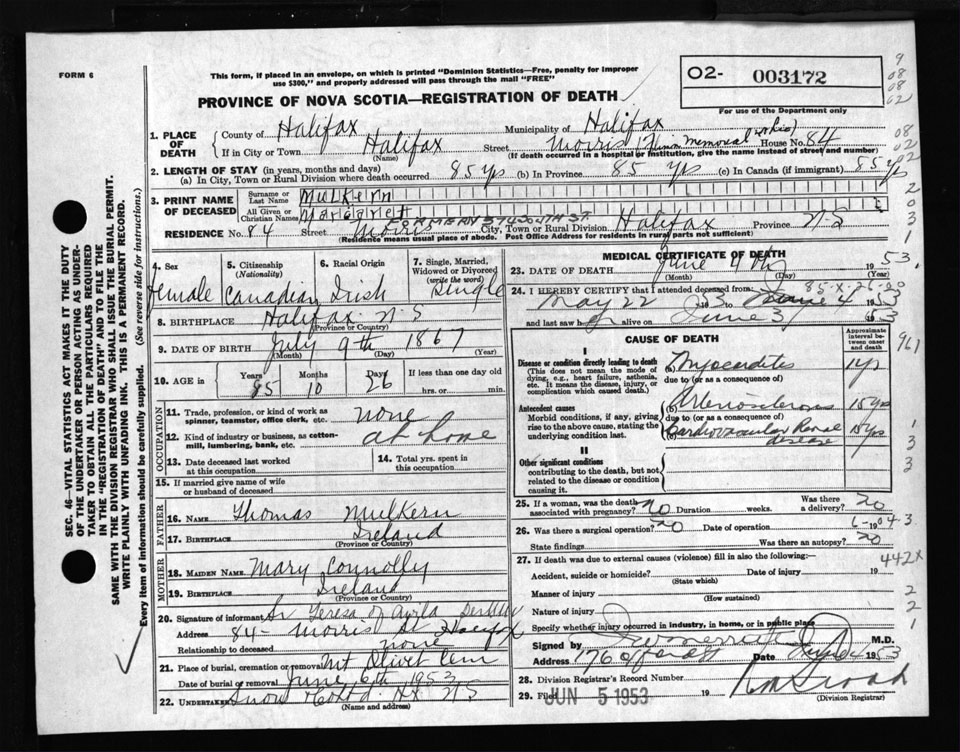 FORM 6
This form, if placed in an envelope, on which is printed "Dominion Statistics—Free, penalty for improper
use $300," and properly addressed will pass through the mail "FREE"
O2- 003172
For use of the Department only
PROVINCE OF NOVA SCOTIA—REGISTRATION OF DEATH
1. PLACE OF DEATH
County of Halifax Municipality of Halifax
If in City or Town Halifax (Name) Street Morris House No. 84
(If death occurred in a hospital or institution, give the name instead of street and number)
2. LENGTH OF STAY (in years, months and days)
(a) In City, Town or Rural Division where death occurred 85 yrs (b) In Province 85 yrs (c) In Canada (if immigrant) 85 yrs
3. PRINT NAME OF DECEASED
Surname or Last Name Mulkern
All Given or Christian Names Margaret
FORMERLY 574 SOUTH ST.
RESIDENCE No. 84 Street Morris City, Town or Rural Division Halifax Province N-S
(Residence means usual place of abode. Post Office Address for residents in rural parts not sufficient)
4. Sex Female
5. Citizenship (Nationality) Canadian
6. Racial Origin Irish
7. Single, Married, Widowed or Divorced (write the word) Single
8. BIRTHPLACE Halifax N-S
(Province or Country)
9. DATE OF BIRTH July 9th 1867
(Month) (Day) (Year)
10. AGE in Years 85 Months 10 Days 26 If less than one day old hrs. or min.
OCCUPATION
11. Trade, profession, or kind of work as spinner, teamster, office clerk, etc. none
12. Kind of industry or business, as cotton-mill, lumbering, bank, etc. at home
13. Date deceased last worked at this occupation
14. Total yrs. spent in this occupation
15. If married give name of wife or husband of deceased
FATHER
16. NAME Thomas Mulkern
17. BIRTHPLACE Ireland
(Province or Country)
MOTHER
18. MAIDEN NAME Mary Connolly
19. BIRTHPLACE Ireland
(Province or Country)
20. Signature of informant Sr Teresa of Avila
Address 84- Morris St Halifax
Relationship to deceased none
21. Place of burial, cremation or removal Mt Olivet Cem
Date of burial or removal June 6th 1953
22. UNDERTAKER Snow Co Ltd. Hx NS
(Name and address)
MEDICAL CERTIFICATE OF DEATH
23. DATE OF DEATH June 4th 1953.
(Month) (Day) (Year)
85-X-26-00
24. I HEREBY CERTIFY that I attended deceased from:
May 22 1953 to June 4 1953
and last saw her alive on June 3/ 1953
CAUSE OF DEATH
Approximate interval between onset and death
I
Disease or condition directly leading to death
(This does not mean the mode of dying, e.g., heart failure, asthenia, etc. It means the disease, injury, or complication which caused death.)
(a) Myocarditis 1yr
due to (or as a consequence of)
Antecedent causes
Morbid conditions, if any, giving rise to the above cause, stating the underlying condition last.
(b) Arteriosclerosis 15 yrs
due to (or as a consequence of)
(c) Cardiovascular Renal disease 15 yrs
II
Other significant conditions
contributing to the death, but not related to the disease or condition causing it.
25. If a woman, was the death associated with pregnancy? No Duration weeks. Was there a delivery? No
26. Was there a surgical operation? No Date of operation 19
State findings Was there an autopsy? No
27. If death was due to external causes (violence) fill in also the following:
442X
Accident, suicide or homicide? Date of injury 19
(State which)
Manner of injury
(How sustained)
Nature of injury
Specify whether injury occurred in industry, in home, or in public place
Signed by M.D.
Address Date June 4 1953
28. Division Registrar's Record Number
29. Filed JUN 5 1953 19
(Division Registrar)
SEC. 46—VITAL STATISTICS ACT MAKES IT THE DUTY
OF THE UNDERTAKER OR PERSON ACTING AS UNDER-
TAKER TO OBTAIN ALL THE PARTICULARS REQUIRED
IN THE "REGISTRATION OF DEATH" AND TO FILE THE
SAME WITH THE DIVISION REGISTRAR WHO SHALL ISSUE THE BURIAL PERMIT.
WRITE PLAINLY WITH UNFADING INK. THIS IS A PERMANENT RECORD.
Every item of information should be carefully supplied. (See reverse side for instructions.)